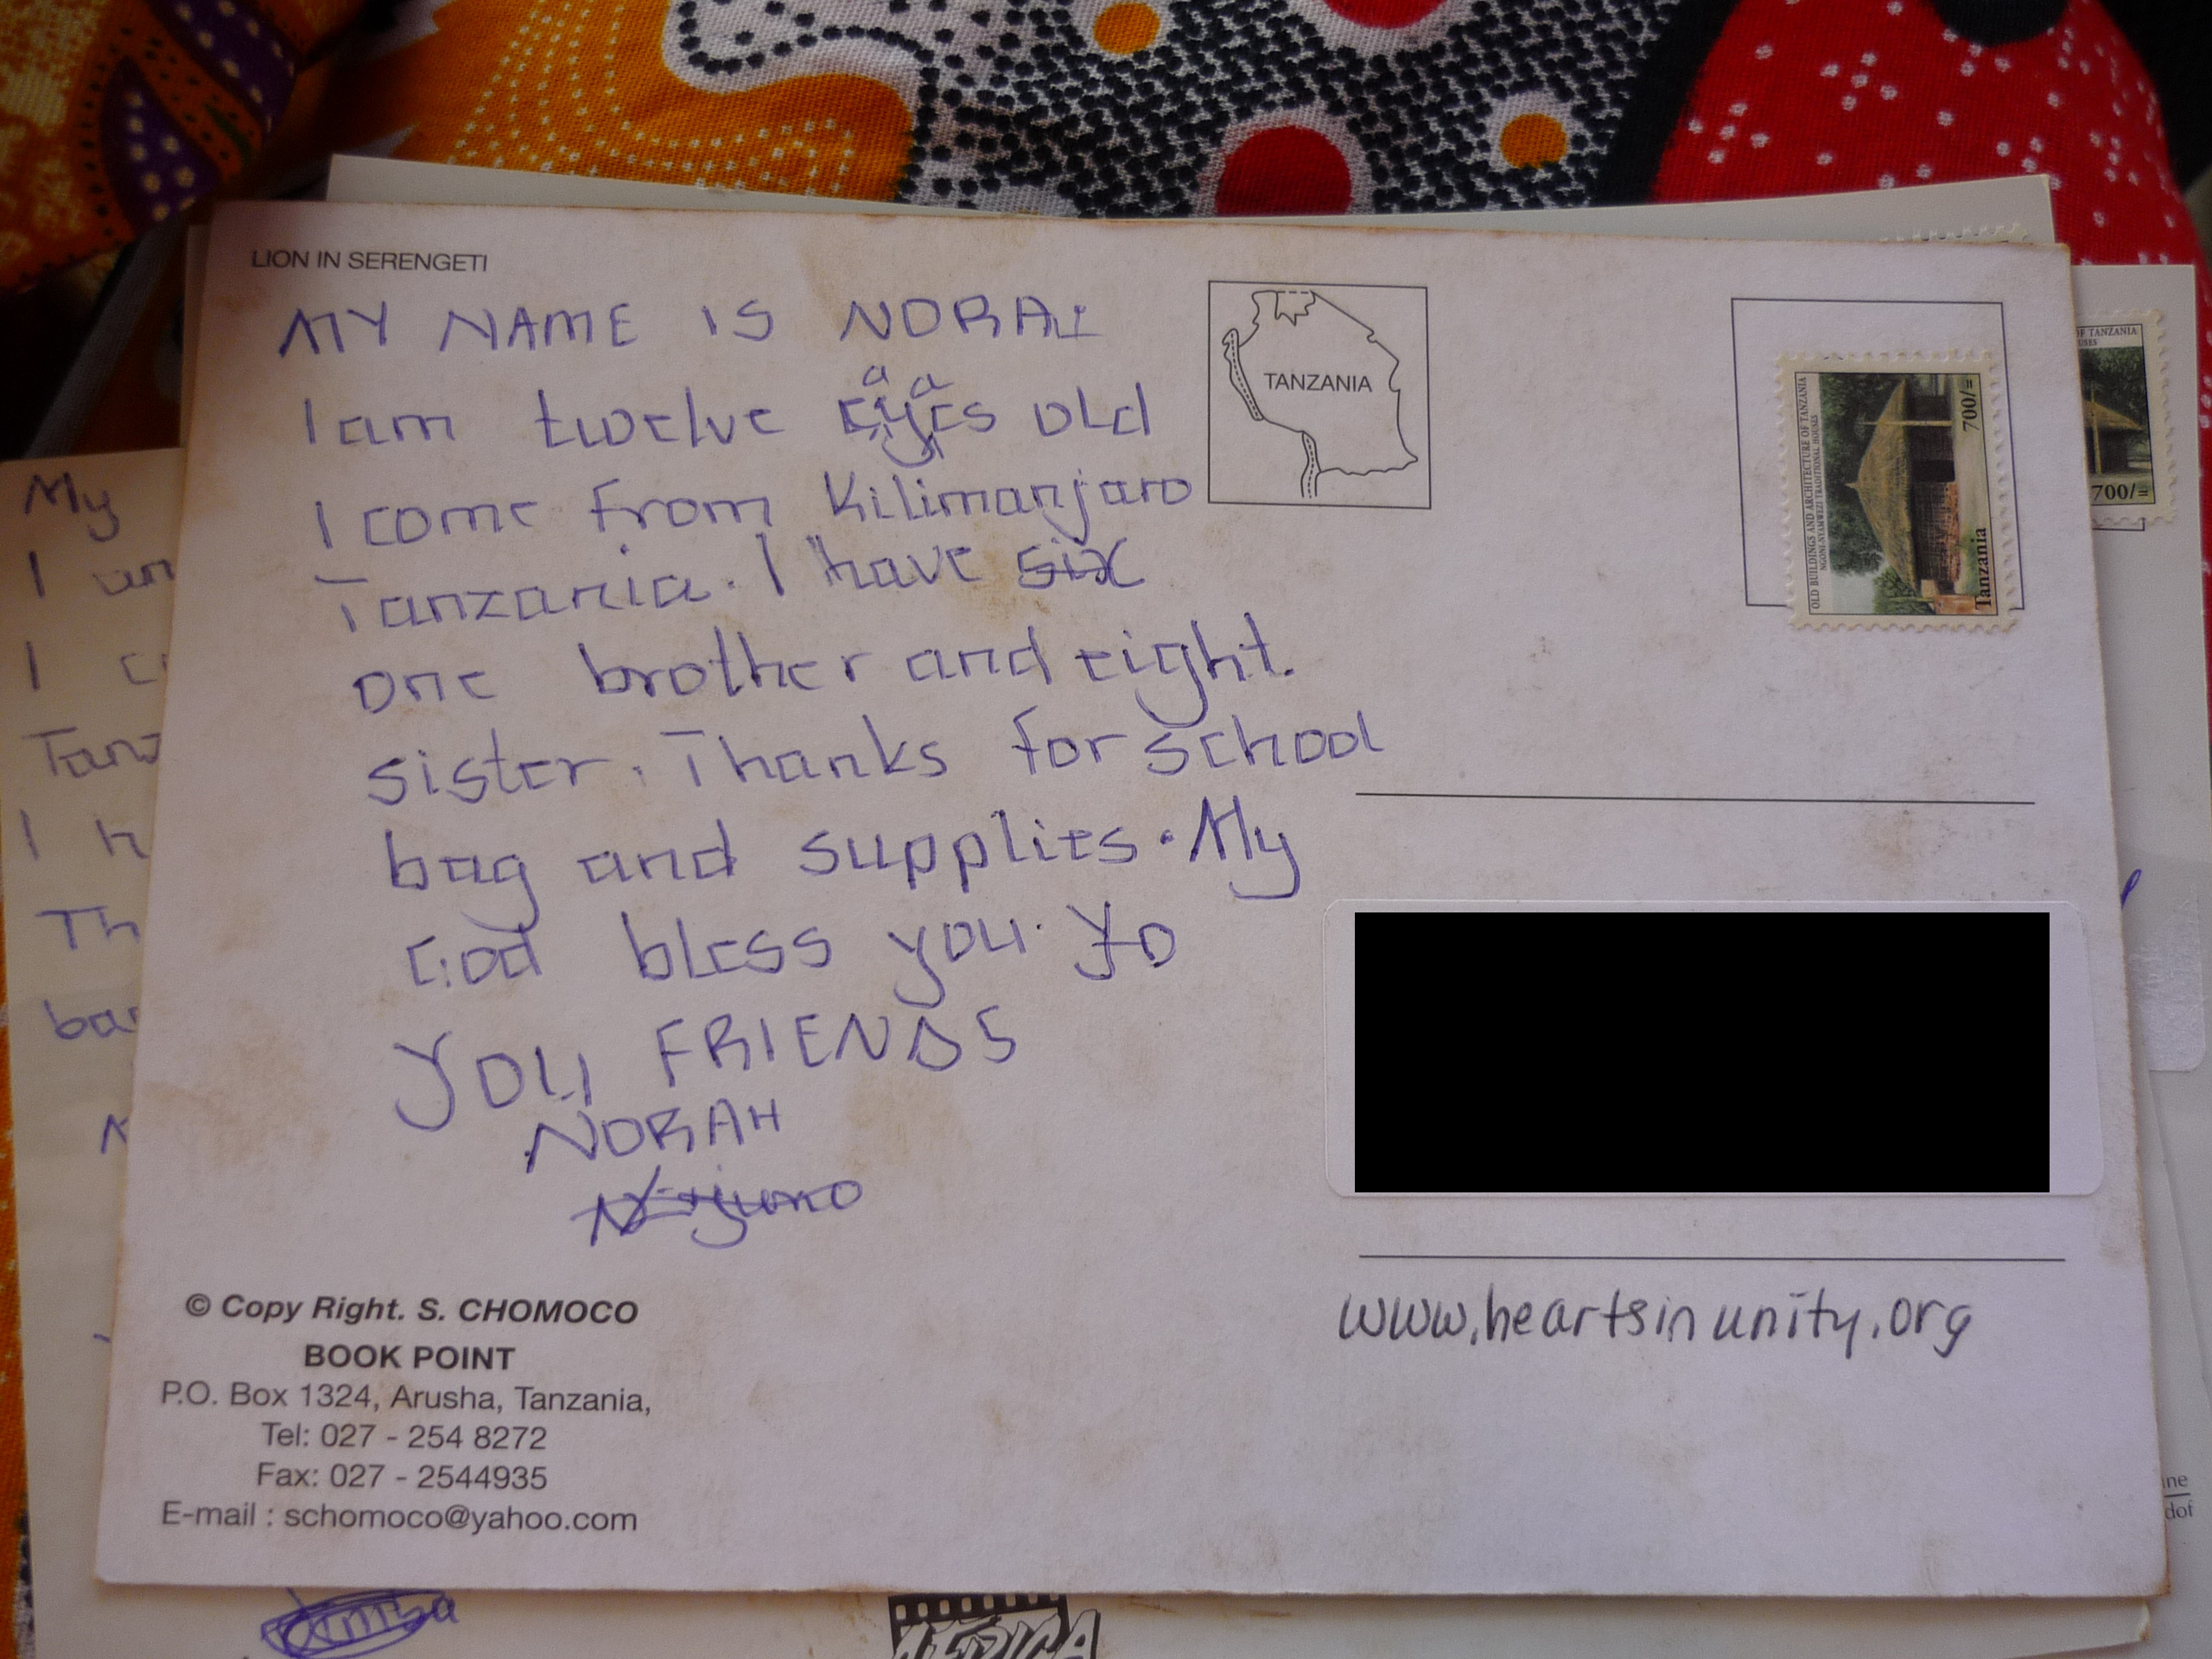 LION IN SERENGETI
MY NAME IS NORAH
I am twelve old
I come from Kilimanjaro
Tanzania. I have six
one brother and eight.
sister. Thanks for school
bag and supplies. My
God bless you. yo
you FRIENDS
NORAH
TANZANIA
OLD BUILDINGS AND ARCHITECTURE OF TANZANIA
NGONI-NYAMWEZI TRADITIONAL HOUSES
700/=
Tanzania
OF TANZANIA
700/=
www.heartsinunity.org
© Copy Right. S. CHOMOCO
BOOK POINT
P.O. Box 1324, Arusha, Tanzania,
Tel: 027 - 254 8272
Fax: 027 - 2544935
E-mail : schomoco@yahoo.com
My
I
I
I h
Th
AFRICA